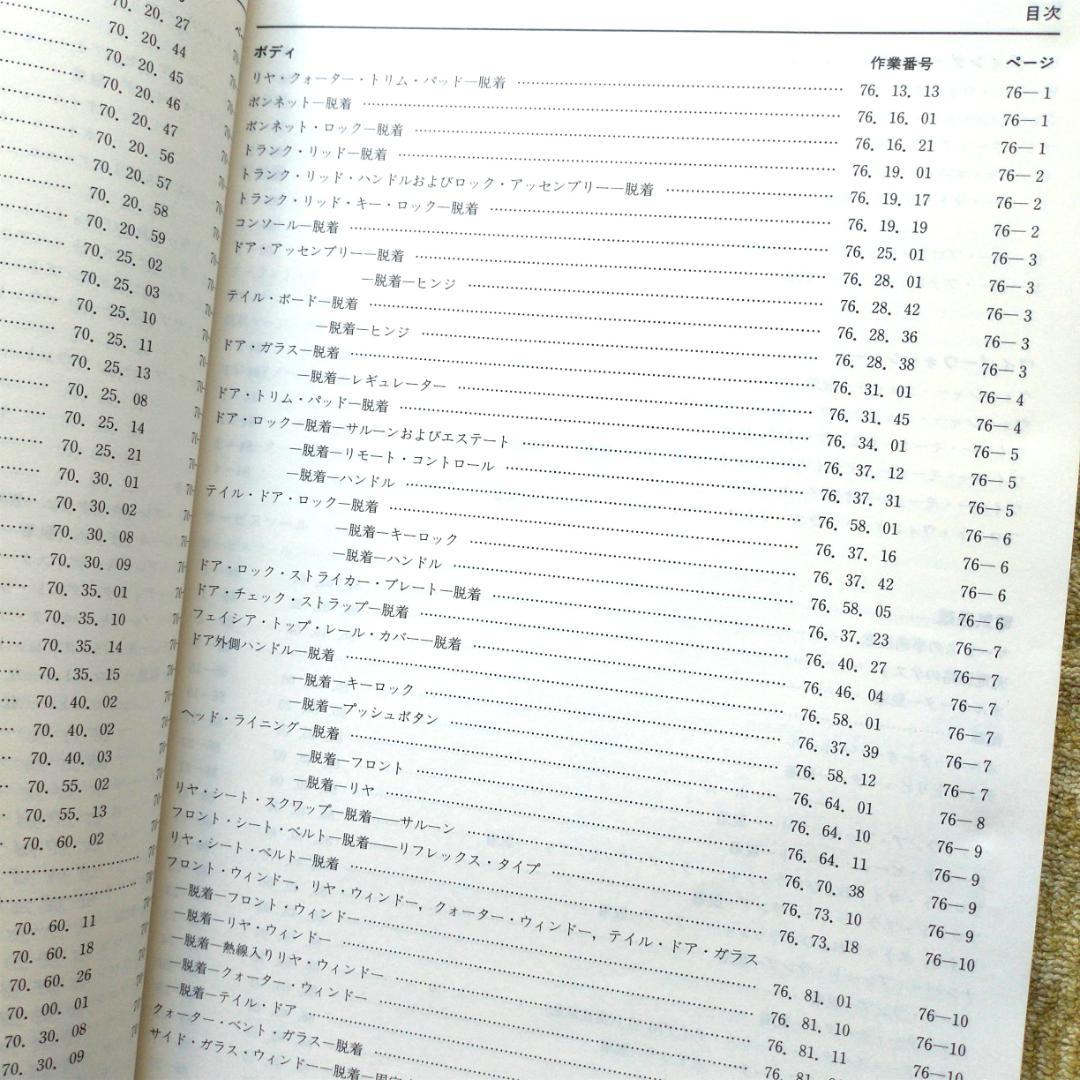 70. 20. 27
70. 20. 44
70. 20. 45
70. 20. 46
70. 20. 47
70. 20. 56
70. 20. 57
70. 20. 58
70. 20. 59
70. 25. 02
70. 25. 03
70. 25. 10
70. 25. 11
70. 25. 13
70. 25. 08
70. 25. 14
70. 25. 21
70. 30. 01
70. 30. 02
70. 30. 08
70. 30. 09
70. 35. 01
70. 35. 10
70. 35. 14
70. 35. 15
70. 40. 02
70. 40. 02
70. 40. 03
70. 55. 02
70. 55. 13
70. 60. 02
70. 60. 11
70. 60. 18
70. 60. 26
70. 00. 01
70. 30. 08
70. 30. 09
目次
ボディ 作業番号 ページ
リヤ・クォーター・トリム・パッド—脱着 76. 13. 13 76—1
ボンネット—脱着 76. 16. 01 76—1
ボンネット・ロック—脱着 76. 16. 21 76—1
トランク・リッド—脱着 76. 19. 01 76—2
トランク・リッド・ハンドルおよびロック・アッセンブリー—脱着 76. 19. 17 76—2
トランク・リッド・キー・ロック—脱着 76. 19. 19 76—2
コンソール—脱着 76. 25. 01 76—3
ドア・アッセンブリー—脱着 76. 28. 01 76—3
—脱着—ヒンジ 76. 28. 42 76—3
テイル・ボード—脱着 76. 28. 36 76—3
—脱着—ヒンジ 76. 28. 38 76—3
ドア・ガラス—脱着 76. 31. 01 76—4
—脱着—レギュレーター 76. 31. 45 76—4
ドア・トリム・パッド—脱着 76. 34. 01 76—5
ドア・ロック—脱着—サルーンおよびエステート 76. 37. 12 76—5
—脱着—リモート・コントロール 76. 37. 31 76—5
—脱着—ハンドル 76. 58. 01 76—6
テイル・ドア・ロック—脱着 76. 37. 16 76—6
—脱着—キーロック 76. 37. 42 76—6
—脱着—ハンドル 76. 58. 05 76—6
ドア・ロック・ストライカー・プレート—脱着 76. 37. 23 76—7
ドア・チェック・ストラップ—脱着 76. 40. 27 76—7
フェイシア・トップ・レール・カバー—脱着 76. 46. 04 76—7
ドア外側ハンドル—脱着 76. 58. 01 76—7
—脱着—キーロック 76. 37. 39 76—7
—脱着—プッシュボタン 76. 58. 12 76—7
ヘッド・ライニング—脱着 76. 64. 01 76—8
—脱着—フロント 76. 64. 10 76—9
—脱着—リヤ 76. 64. 11 76—9
リヤ・シート・スクワップ—脱着——サルーン 76. 70. 38 76—9
フロント・シート・ベルト—脱着——リフレックス・タイプ 76. 73. 10 76—9
リヤ・シート・ベルト—脱着 76. 73. 18 76—10
フロント・ウィンドー, リヤ・ウィンドー, クォーター・ウィンドー, テイル・ドア・ガラス
—脱着—フロント・ウィンドー 76. 81. 01 76—10
—脱着—リヤ・ウィンドー 76. 81. 10 76—10
—脱着—熱線入りリヤ・ウィンドー 76. 81. 11 76—10
—脱着—クォーター・ウィンドー
—脱着—テイル・ドア
クォーター・ベント・ガラス—脱着
サイド・ガラス・ウィンドー—脱着